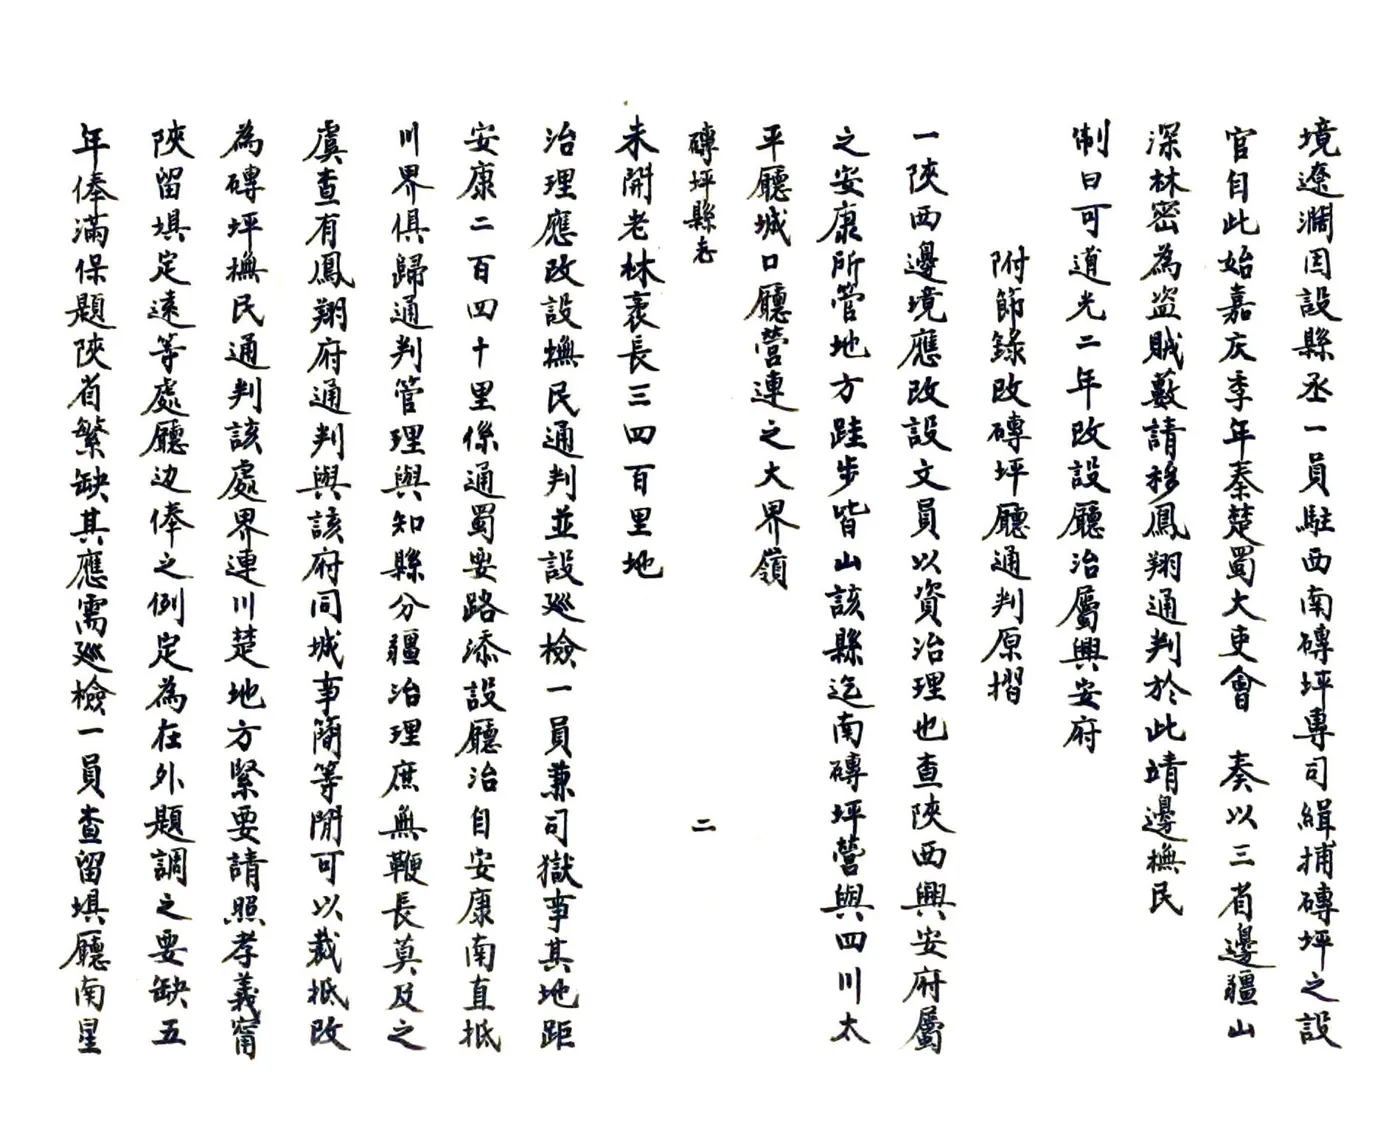 境遼濶因設縣丞一員駐西南磚坪專司緝捕磚坪之設
官自此始嘉庆季年秦楚蜀大吏會　奏以三省邊疆山
深林密為盗贼藪請移鳳翔通判於此靖邊撫民
制曰可道光二年改設廳治屬興安府
附節錄改磚坪廳通判原摺
一陝西邊境應改設文員以資治理也查陝西興安府屬
之安康所管地方跬步皆山該縣迄南磚坪營與四川太
平廳城口廳營連之大界嶺
磚坪縣志
二
未開老林袤長三四百里地
治理應改設撫民通判並設巡檢一員兼司獄事其地距
安康二百四十里係通蜀要路添設廳治自安康南直抵
川界俱歸通判管理與知縣分疆治理庶無鞭長莫及之
虞查有鳳翔府通判與該府同城事簡等閒可以裁抵改
為磚坪撫民通判該處界連川楚地方緊要請照孝義甯
陝留垻定遠等處廳边俸之例定為在外題調之要缺五
年俸滿保題陝省繁缺其應需巡檢一員查留垻廳南星